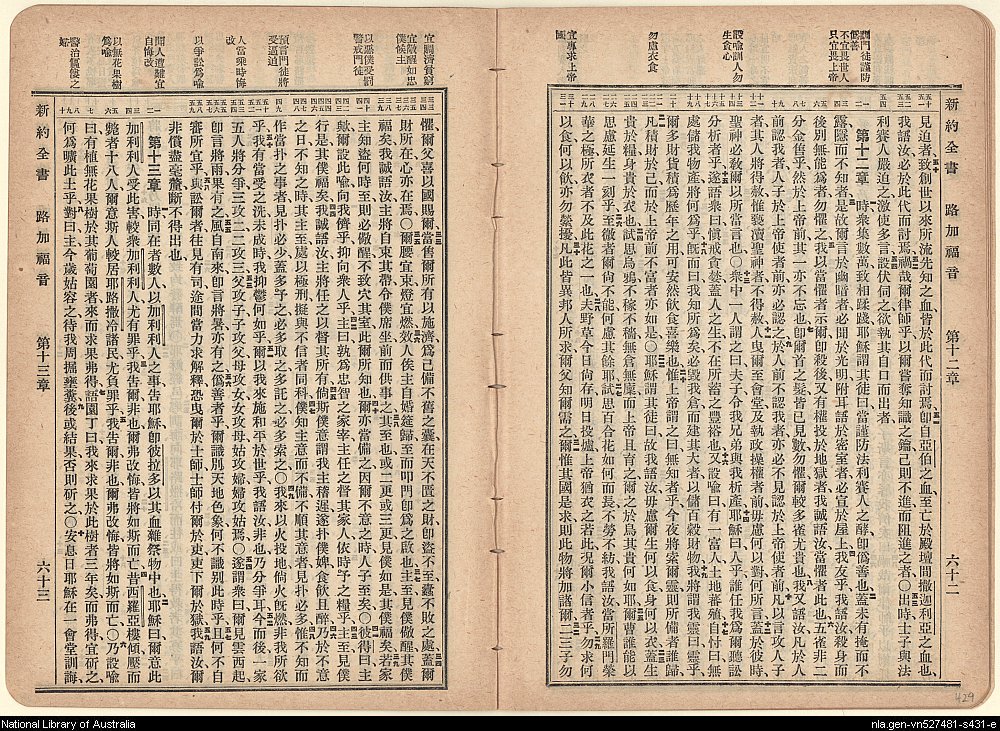 新約全書 路加福音 第十二章 六十二
訓門徒謹防
僞善
不宜畏世人
只宜畏上帝
設喻訓人勿
生貪心
勿慮衣食
宜專求上帝
國
見迫者致創世以來所流先知之血皆於此代而討焉卽自亞伯之血至亡於殿壇間撒迦利亞之血也
我語汝必於此代而討焉禍哉爾律師乎以爾嘗奪知識之鑰己則不進而阻進之者〇出時士子與法
利賽人嚴迫之激使多言設伏伺之欲執其自口而出者
第十二章 時衆集數萬致相蹂躪耶穌謂其徒曰首當謹防法利賽人之酵卽僞善也蓋未有掩而不
露隱而不知者是故爾言於幽暗者必聞於光明附耳語於密室者必宣於屋上我友乎我語汝殺身而
後別無能爲者勿懼之我以當懼者示爾卽殺後又有權投於地獄者我誠語汝當懼者此也五雀非二
分金售乎然於上帝前其一亦不忘也卽爾首之髮皆已見數勿懼爾較多雀尤貴也我又語汝凡於人
前認我者人子於上帝使者前亦必認之於人前不認我者亦必不見認於上帝使者前凡以言攻人子
者其人將得赦惟褻瀆聖神者不得赦人曳爾至會堂及執政操權者前毋慮何以對何所言蓋於彼時
聖神必敎爾以所當言也〇衆中一人謂之曰夫子令我兄弟與我析產耶穌曰人乎誰任我爲爾聽訟
分析者乎遂語衆曰愼戒貪婪蓋人之生不在所蓄之豐裕也又設喻曰有一富人土地蕃殖自忖曰無
處儲我物產將何爲乎旣而曰我知所爲矣必毀我倉而建其大者以儲百穀財物我將謂我靈曰靈乎
爾多財貨積爲歷年之用可安然飲食喜樂也惟上帝謂之曰無知者乎今夜將索爾靈則所備者誰歸
凡積財於己而於上帝前不富者亦如是〇耶穌謂其徒曰故我語汝毋慮爾生何以食身何以衣蓋生
貴於糧身貴於衣也試思烏鴉不稼不穡無倉無廩而上帝且育之爾之於鳥其貴何如耶爾曹誰能以
思慮延生一刻乎至微者爾尚不能何慮其餘耶試思百合花如何而長不勞不紡我語汝當所羅門榮
華之極所衣者不及此花之一也夫野草今日尚存明日投爐上帝猶衣之若此況爾小信者乎勿求何
以食何以飲亦勿縈擾凡此皆異邦人所求爾父知爾需之惟其國是求則此物將加諸爾二三子勿
宜賙濟貧窮
宜儆醒如忠
僕候主
以惡僕受罰
警戒門徒
預言門徒將
受逼迫
人當乘時悔
改
以爭訟爲喻
聞人遭難宜
自悔改
以無花果樹
爲喻
醫治傴僂之
婦
懼爾父喜以國賜爾當售爾所有以施濟爲己備不舊之囊在天不匱之財卽盜不至蠹不敗之處蓋爾
財所在心亦在焉〇爾腰宜束燈宜燃效人俟主自婚筵歸至而叩門卽爲之啟也主至見僕儆醒其僕
福矣我誠語汝主將自束其帶令僕席坐前而供事之其至也或二更或三更見僕如是其僕福矣若家
主知盜何時至則必儆醒不致穴其室此爾所知也爾亦當備之因爾不意之時人子至矣〇彼得曰主
歟爾設此喻向我儕乎抑向衆人乎主曰孰爲忠智之家宰主任之督其家人依時予之糧乎主至見僕
行是其僕福矣我誠語汝主將任之以督其所有倘斯僕意謂我主稽遲遂扑僕婢食飲且醉乃於不意
之日不知之時其主至處以極刑擬與不信者同科僕知主意而不備不順其意者見扑必多惟不知而
作當扑之事者見扑必少蓋多予之必多取之多託之必多索之〇我來以火投地倘火旣燃非我所欲
乎我有當受之洗未成時我抑鬱何如乎爾以我來施和平於世乎我語汝非也乃分爭耳今而後一家
五人將分爭三攻二二攻三父攻子子攻父母攻女女攻母姑攻婦婦攻姑焉〇遂謂衆曰爾見雲西起
卽言將雨果有之風自南來卽言將暑亦有之僞善者乎爾識別天地色象何不識別此時乎且何不自
審所宜乎與訟爾者往見有司途間當力求解釋恐曳爾於士師士師付爾於吏吏下爾於獄我語汝爾
非償盡毫釐斷不得出也
第十三章 時同在者數人以加利利人之事告耶穌卽彼拉多以其血雜祭物中也耶穌曰爾意此
加利利人受此害較衆加利利人尤有罪乎我告爾非也爾弗改悔皆將如斯而亡昔西羅亞樓傾壓而
斃者十八人爾意斯人較居耶路撒冷諸民尤負罪乎我告爾非也爾弗改悔皆將如斯而亡〇乃設喻
曰有植無花果樹於其葡萄園者來而求果弗得語園丁曰我來求果於此樹者三年矣而弗得宜斫之
何爲曠此土乎對曰主今歲姑容之待我周掘壅糞後或結果否則斫之〇安息日耶穌在一會堂訓誨
新約全書 路加福音 第十三章 六十三
429
National Library of Australia
nla.gen-vn527481-s431-e